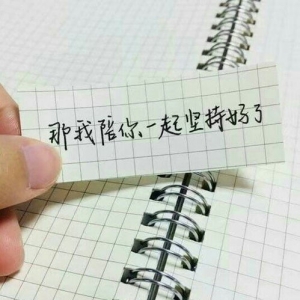 那我陪你、一起坚持好了